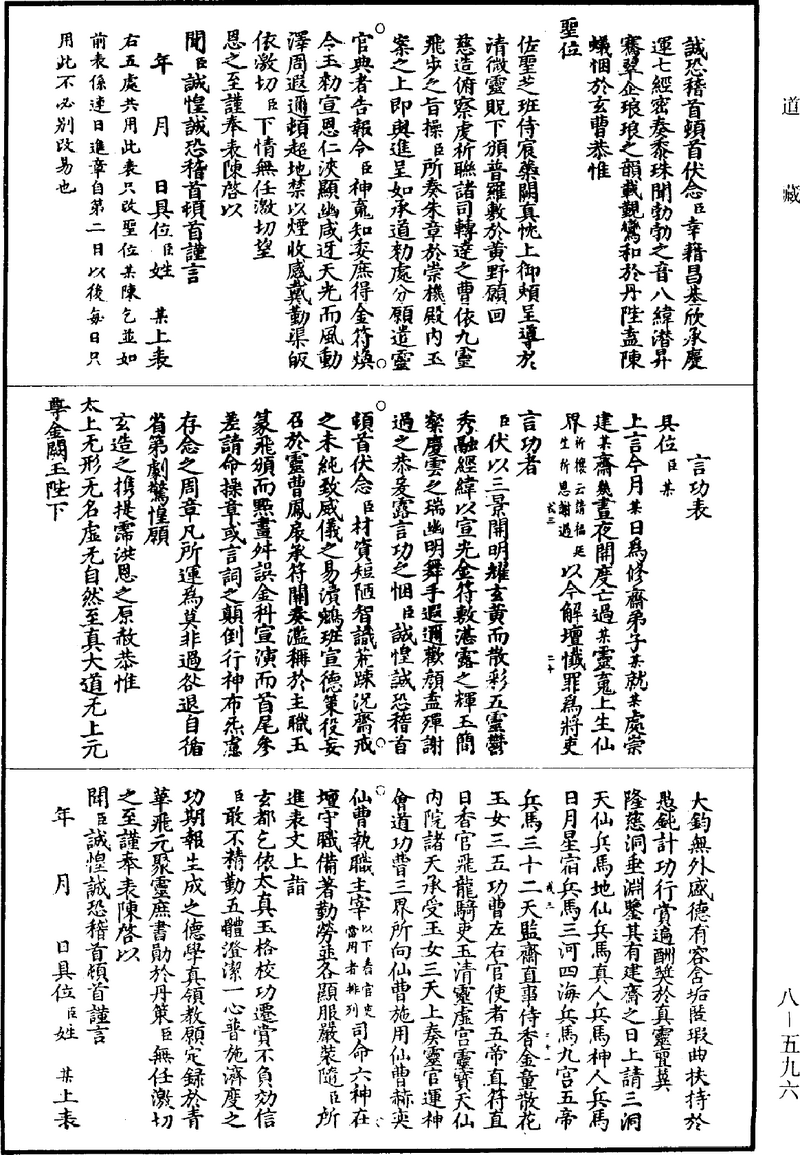 道藏
誠恐稽首頓首伏念臣幸藉昌基欣承慶
運七經密奏黍珠聞勃勃之音八緯潛昇
騫翠企琅琅之韻載觀鸞和於丹陛盍陳
蟻悃於玄曹恭惟
聖位
佐聖芝班侍宸藥闕真忱上御頓呈導於
清微靈貺下頒普羅敷於黃野願回
慈造俯察虔祈聯諸司轉達之曹依九靈
飛步之旨操臣所奏朱章於崇機殿內玉
案之上即與進呈如承道勑處分願遣靈
官典者告報令臣神䰟知委庶得金符煥
令玉勑宣恩仁浹顯幽咸迓天光而風動
澤周遐邇頓超地禁以煙收感戴勤渠皈
依激切臣下情無任激切望
恩之至謹奉表陳啓以
聞臣誠惶誠恐稽首頓首謹言
年 月 日具位臣姓 某上表
右五處共用此表只改聖位某陳乞並如
前表係逐日進章自第二日以後每日只
用此不必別改易也
言功表
具位臣某
上言今月某日爲修齋弟子某就某處崇
建某齋幾晝夜開度亡過某靈䰟上生仙
界祈禳云請福延生所思謝過以今解壇懺罪爲將吏
言功者
臣伏以三景開明耀玄黃而散彩五靈鬱
秀融經緯以宣光金符敷湛露之輝玉簡
粲慶雲之瑞幽明舞手遐邇歡顏盍殫謝
過之恭爰露言功之悃臣誠惶誠恐稽首
頓首伏念臣材資短陋智識荒踈況齋戒
之未純致威儀之易瀆鵷班宣德策役妄
召於靈曹鳳扆承符關奏濫稱於主職玉
篆飛頒而點畫舛誤金科宣演而首尾參
差請命操章或言詞之顛倒行神布炁慮
存念之周章凡所運爲莫非過咎退自循
省第劇驚惶願
玄造之携提霈洪恩之原赦恭惟
太上无形无名虛无自然至真大道无上元
尊金闕玉陛下
大鈞無外盛德有容含垢陰瑕曲扶持於
愚鈍計功行賞遍酬奬於真靈冒冀
隆慈洞垂淵鑒其有建齋之日上請三洞
天仙兵馬地仙兵馬真人兵馬神人兵馬
日月星宿兵馬三河四海兵馬九宮五帝
兵馬三十二天監齋直事侍香金童散花
玉女三五功曹左右官使者五帝直符直
日香官飛龍騎吏玉清靈虛宮靈寶天仙
內院諸天承受玉女三天上奏靈官運神
會道功曹三界所向仙曹施用仙曹赫奕
仙曹執職主宰以下應官吏當用者排列司命六神在
壇守職備著勤勞並各顯服嚴裝隨臣所
進表文上詣
玄都乞依太真玉格校功遷賞不負効信
臣敢不精勤五體澄潔一心普施濟度之
功期報生成之德學真領教願定録於青
華飛元聚靈庶書勛於丹策臣無任激切
之至謹奉表陳啓以
聞臣誠惶誠恐稽首頓首謹言
年 月 日具位臣姓 某上表
八—五九六